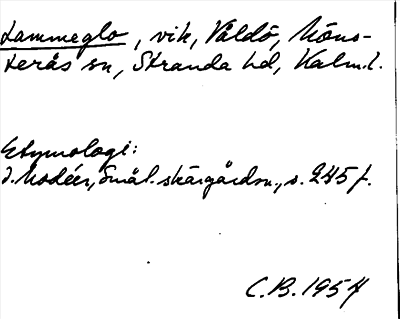 Lammeglo, vik, Våldö, Möns-
terås sn, Stranda hd, Kalm. l.
Etymologi:
I. Modéer, Smål. skärgårdsn., s. 245 f.
C.B. 1954